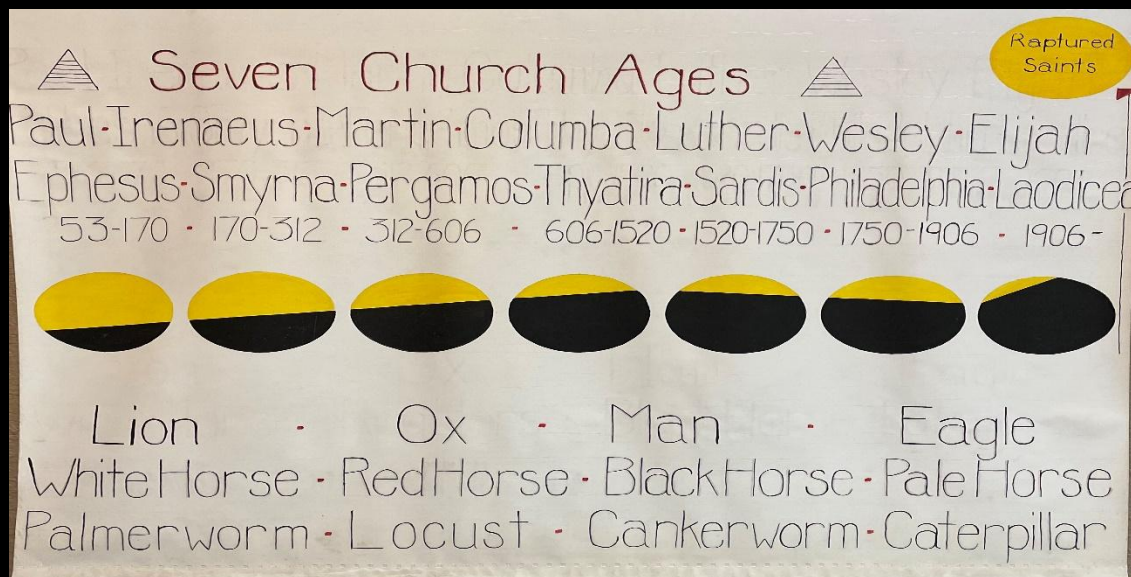 Raptured
Saints
Seven Church Ages
Paul·Irenaeus·Martin·Columba·Luther·Wesley·Elijah
Ephesus·Smyrna·Pergamos·Thyatira·Sardis·Philadelphia·Laodicea
53-170 · 170-312 · 312-606 · 606-1520 · 1520-1750 · 1750-1906 · 1906-
Lion · Ox · Man · Eagle
White Horse · Red Horse · Black Horse · Pale Horse
Palmerworm · Locust · Cankerworm · Caterpillar